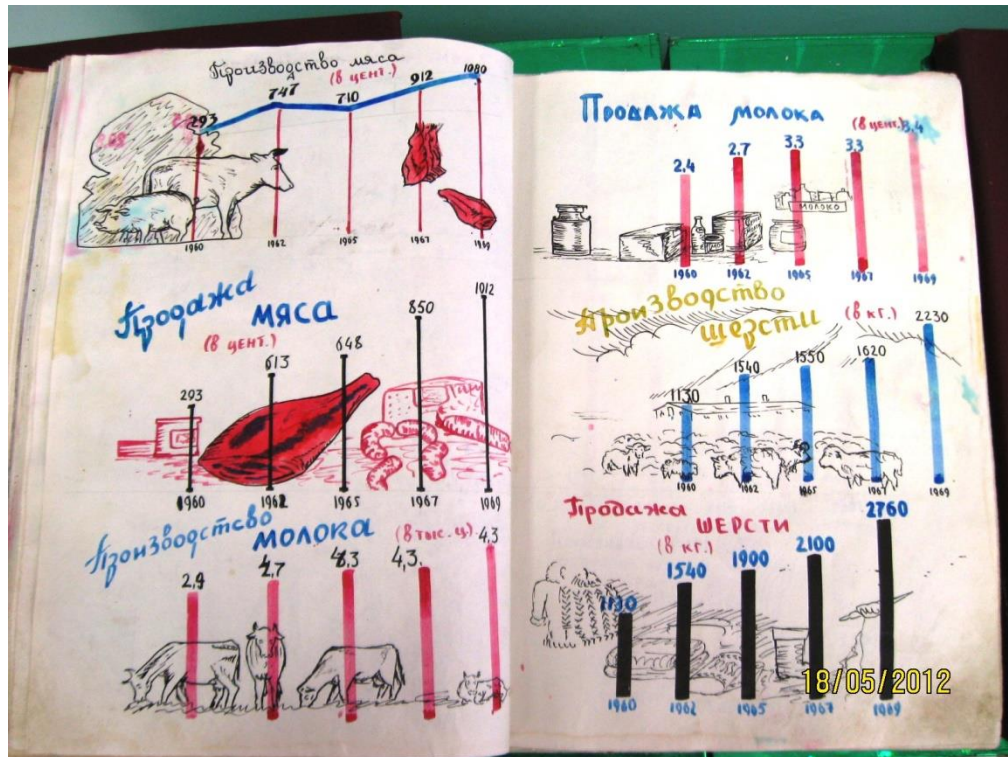 Производство мяса
(в цент.)
293 747 710 912 1080
1960 1962 1965 1967 1969
Продажа
мяса
(в цент.)
293 613 648 850 1012
1960 1962 1965 1967 1969
Производство
молока (в тыс. ц)
2,9 2,7 4,3 4,3. 4,3
Продажа молока (в цент.) 3.4
2.4 2.7 3.3 3.3
МОЛОКО
1960 1962 1965 1967 1969
Производство
шерсти (в кг.)
1130 1540 1550 1620 2230
1960 1962 1965 1967 1969
Продажа
шерсти
(в кг.)
1130 1540 1900 2100 2760
1960 1962 1965 1967 1969
18/05/2012